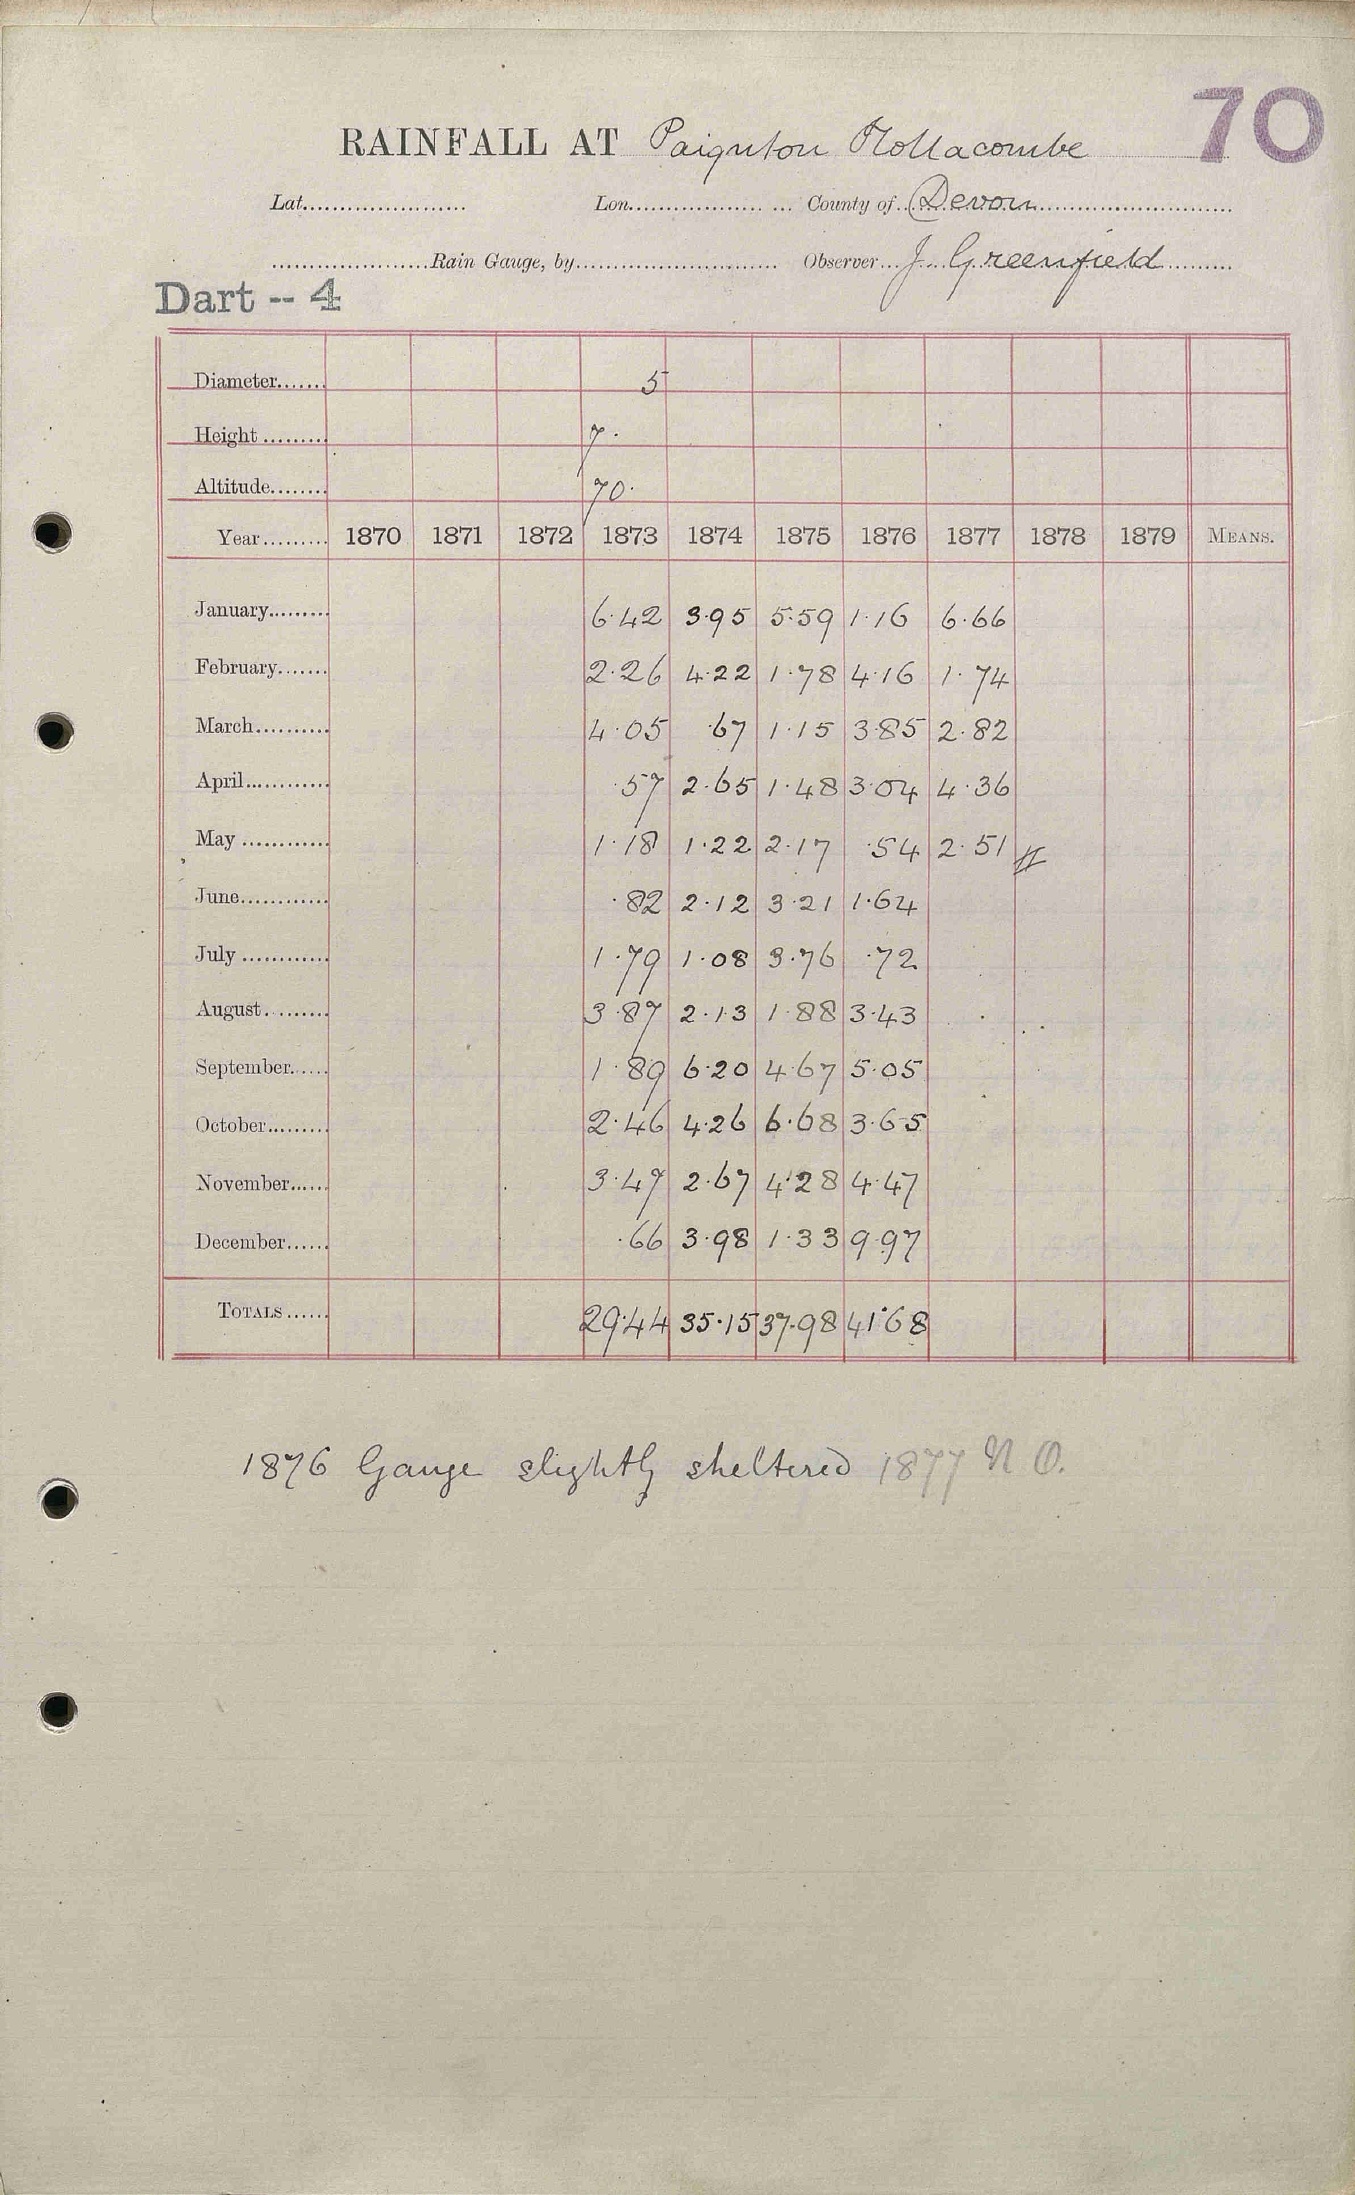 70
RAINFALL AT Paignton Hollacombe
Lat...................... Lon.................. ... County of Devon
.....................Rain Gauge, by........................... Observer J. Greenfield
Dart -- 4
Diameter....... 5
Height ......... 7.
Altitude........ 70.
Year......... 1870 1871 1872 1873 1874 1875 1876 1877 1878 1879 MEANS.
January......... 6.42 3.95 5.59 1.16 6.66
February....... 2.26 4.22 1.78 4.16 1.74
March.......... 4.05 .67 1.15 3.85 2.82
April............ .57 2.65 1.48 3.04 4.36
May ............ 1.18 1.22 2.17 .54 2.51 //
June............ .82 2.12 3.21 1.64
July ............ 1.79 1.08 3.76 .72
August......... 3.87 2.13 1.88 3.43
September...... 1.89 6.20 4.67 5.05
October......... 2.46 4.26 6.68 3.65
November...... 3.47 2.67 4.28 4.47
December...... .66 3.98 1.33 9.97
TOTALS...... 29.44 35.15 37.98 41.68
1876 Gauge slightly sheltered 1877 N O.